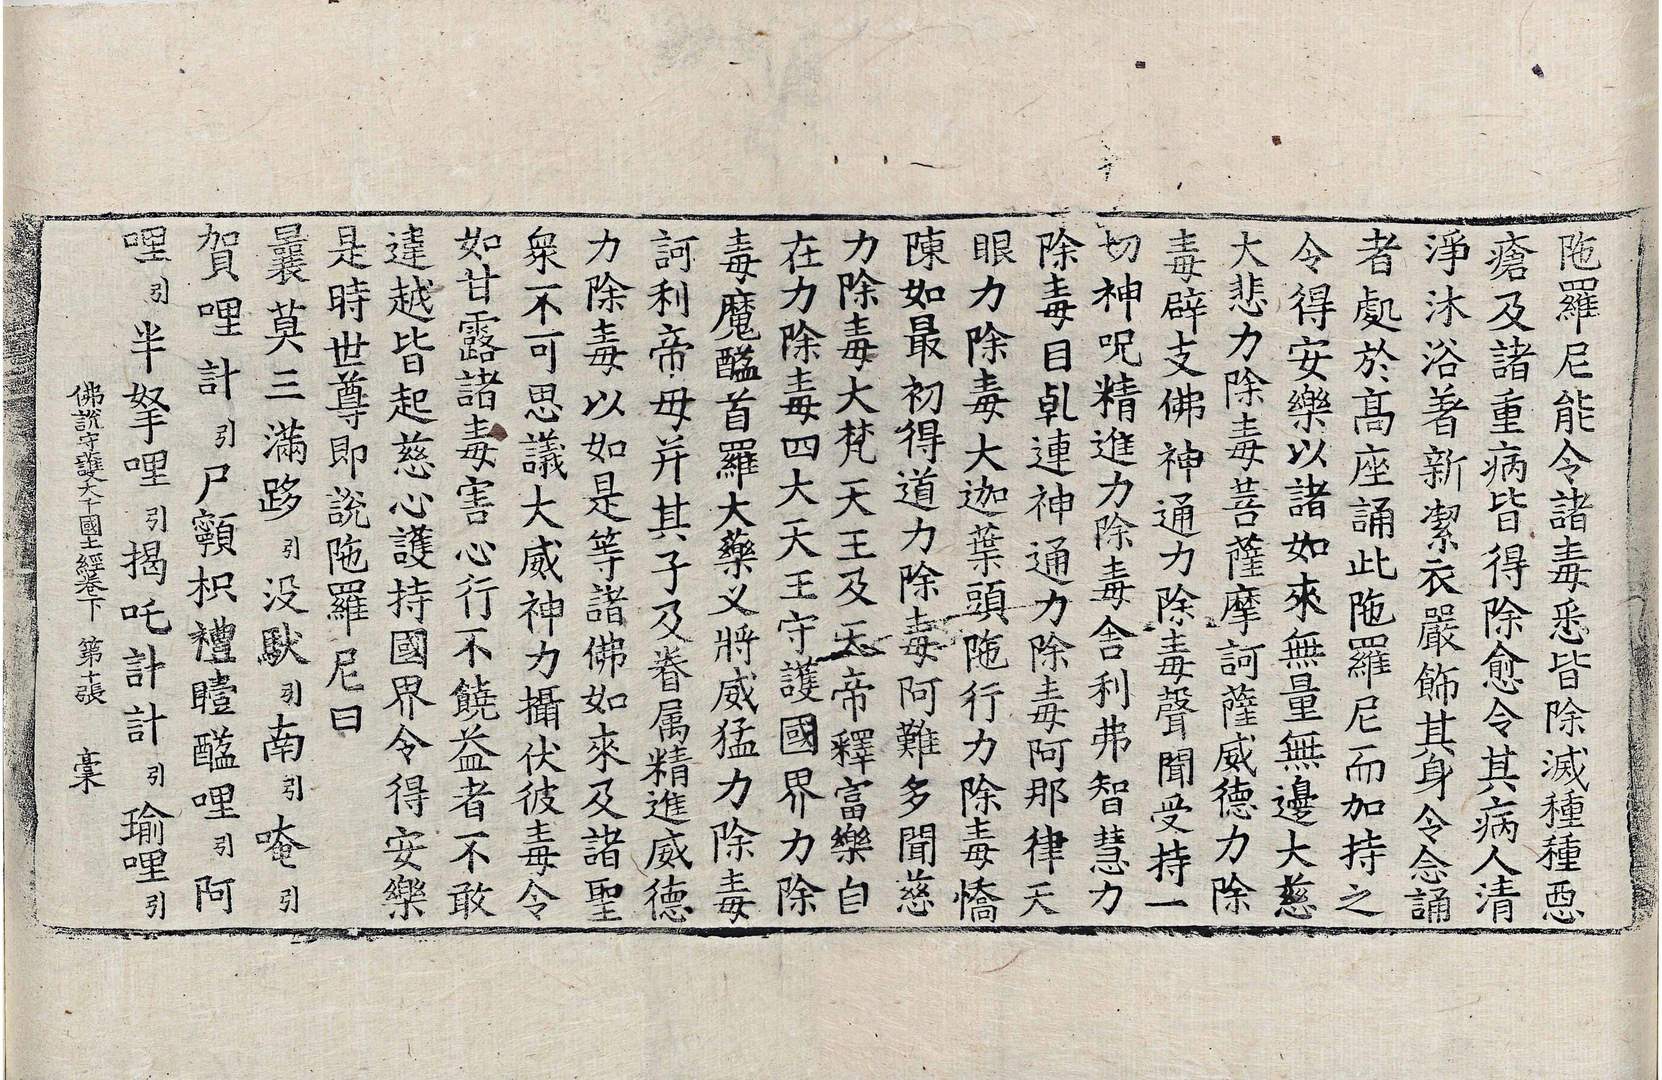 陁羅尼能令諸毒悉皆除滅種種惡
瘡及諸重病皆得除愈令其病人清
淨沐浴著新潔衣嚴飾其身令念誦
者處於高座誦此陁羅尼而加持之
令得安樂以諸如來無量無邊大慈
大悲力除毒菩薩摩訶薩威德力除
毒辟支佛神通力除毒聲聞受持一
切神呪精進力除毒舍利弗智慧力
除毒目乹連神通力除毒阿那律天
眼力除毒大迦葉頭陁行力除毒憍
陳如最初得道力除毒阿難多聞慈
力除毒大梵天王及天帝釋富樂自
在力除毒四大天王守護國界力除
毒魔醯首羅大藥叉將威猛力除毒
訶利帝母并其子及眷属精進威德
力除毒以如是等諸佛如來及諸聖
衆不可思議大威神力攝伏彼毒令
如甘露諸毒害心行不饒益者不敢
違越皆起慈心護持國界令得安樂
是時世尊即說陁羅尼曰
曩莫三滿跢引没馱引南引唵引
賀哩計引尸顐枳禮曀醯哩引阿
哩引半拏哩引揭吒計計引瑜哩引
佛說守護大千國土經卷下 第十張 稾